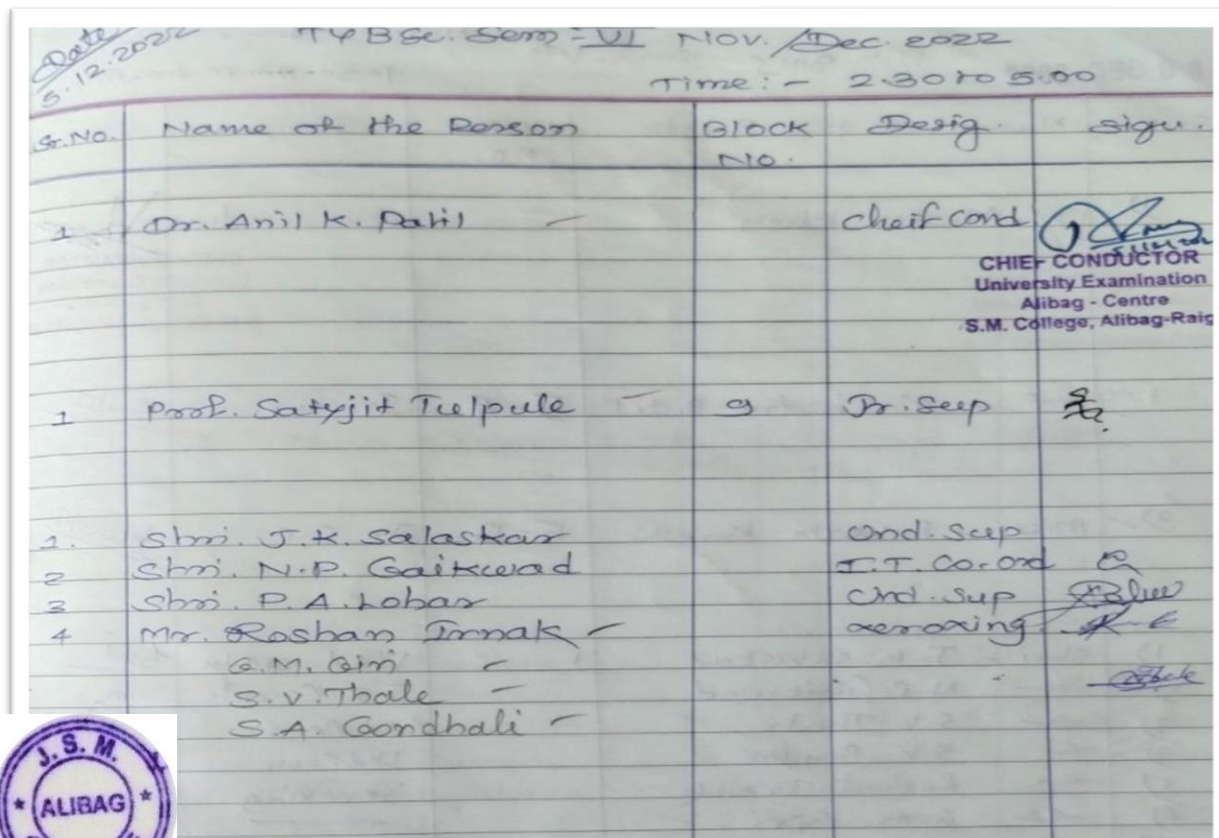 Date
5.12.2022
TYBSc. Sem = VI Nov. / Dec. 2022
Time : - 2.30 to 5.00
Sr.No. Name of the Person Block No. Desig. sign.
1 Dr. Anil K. Patil - Cheif Cond
CHIEF CONDUCTOR
University Examination
Alibag - Centre
S.M. College, Alibag-Raig
1 Prof. Satyjit Tulpule - 9 Jr. Sup
1. Shri. J.K. Salaskar Ond. Sup
2 Shri. N.P. Gaikwad I.T. Co-ord
3 Shri. P.A. Lobar Ond. Sup
4 Mr. Roshan Irnak - xeroxing
G.M. Giri -
S.V. Thale -
S.A. Gondhali -
J.S.M.
* ALIBAG *